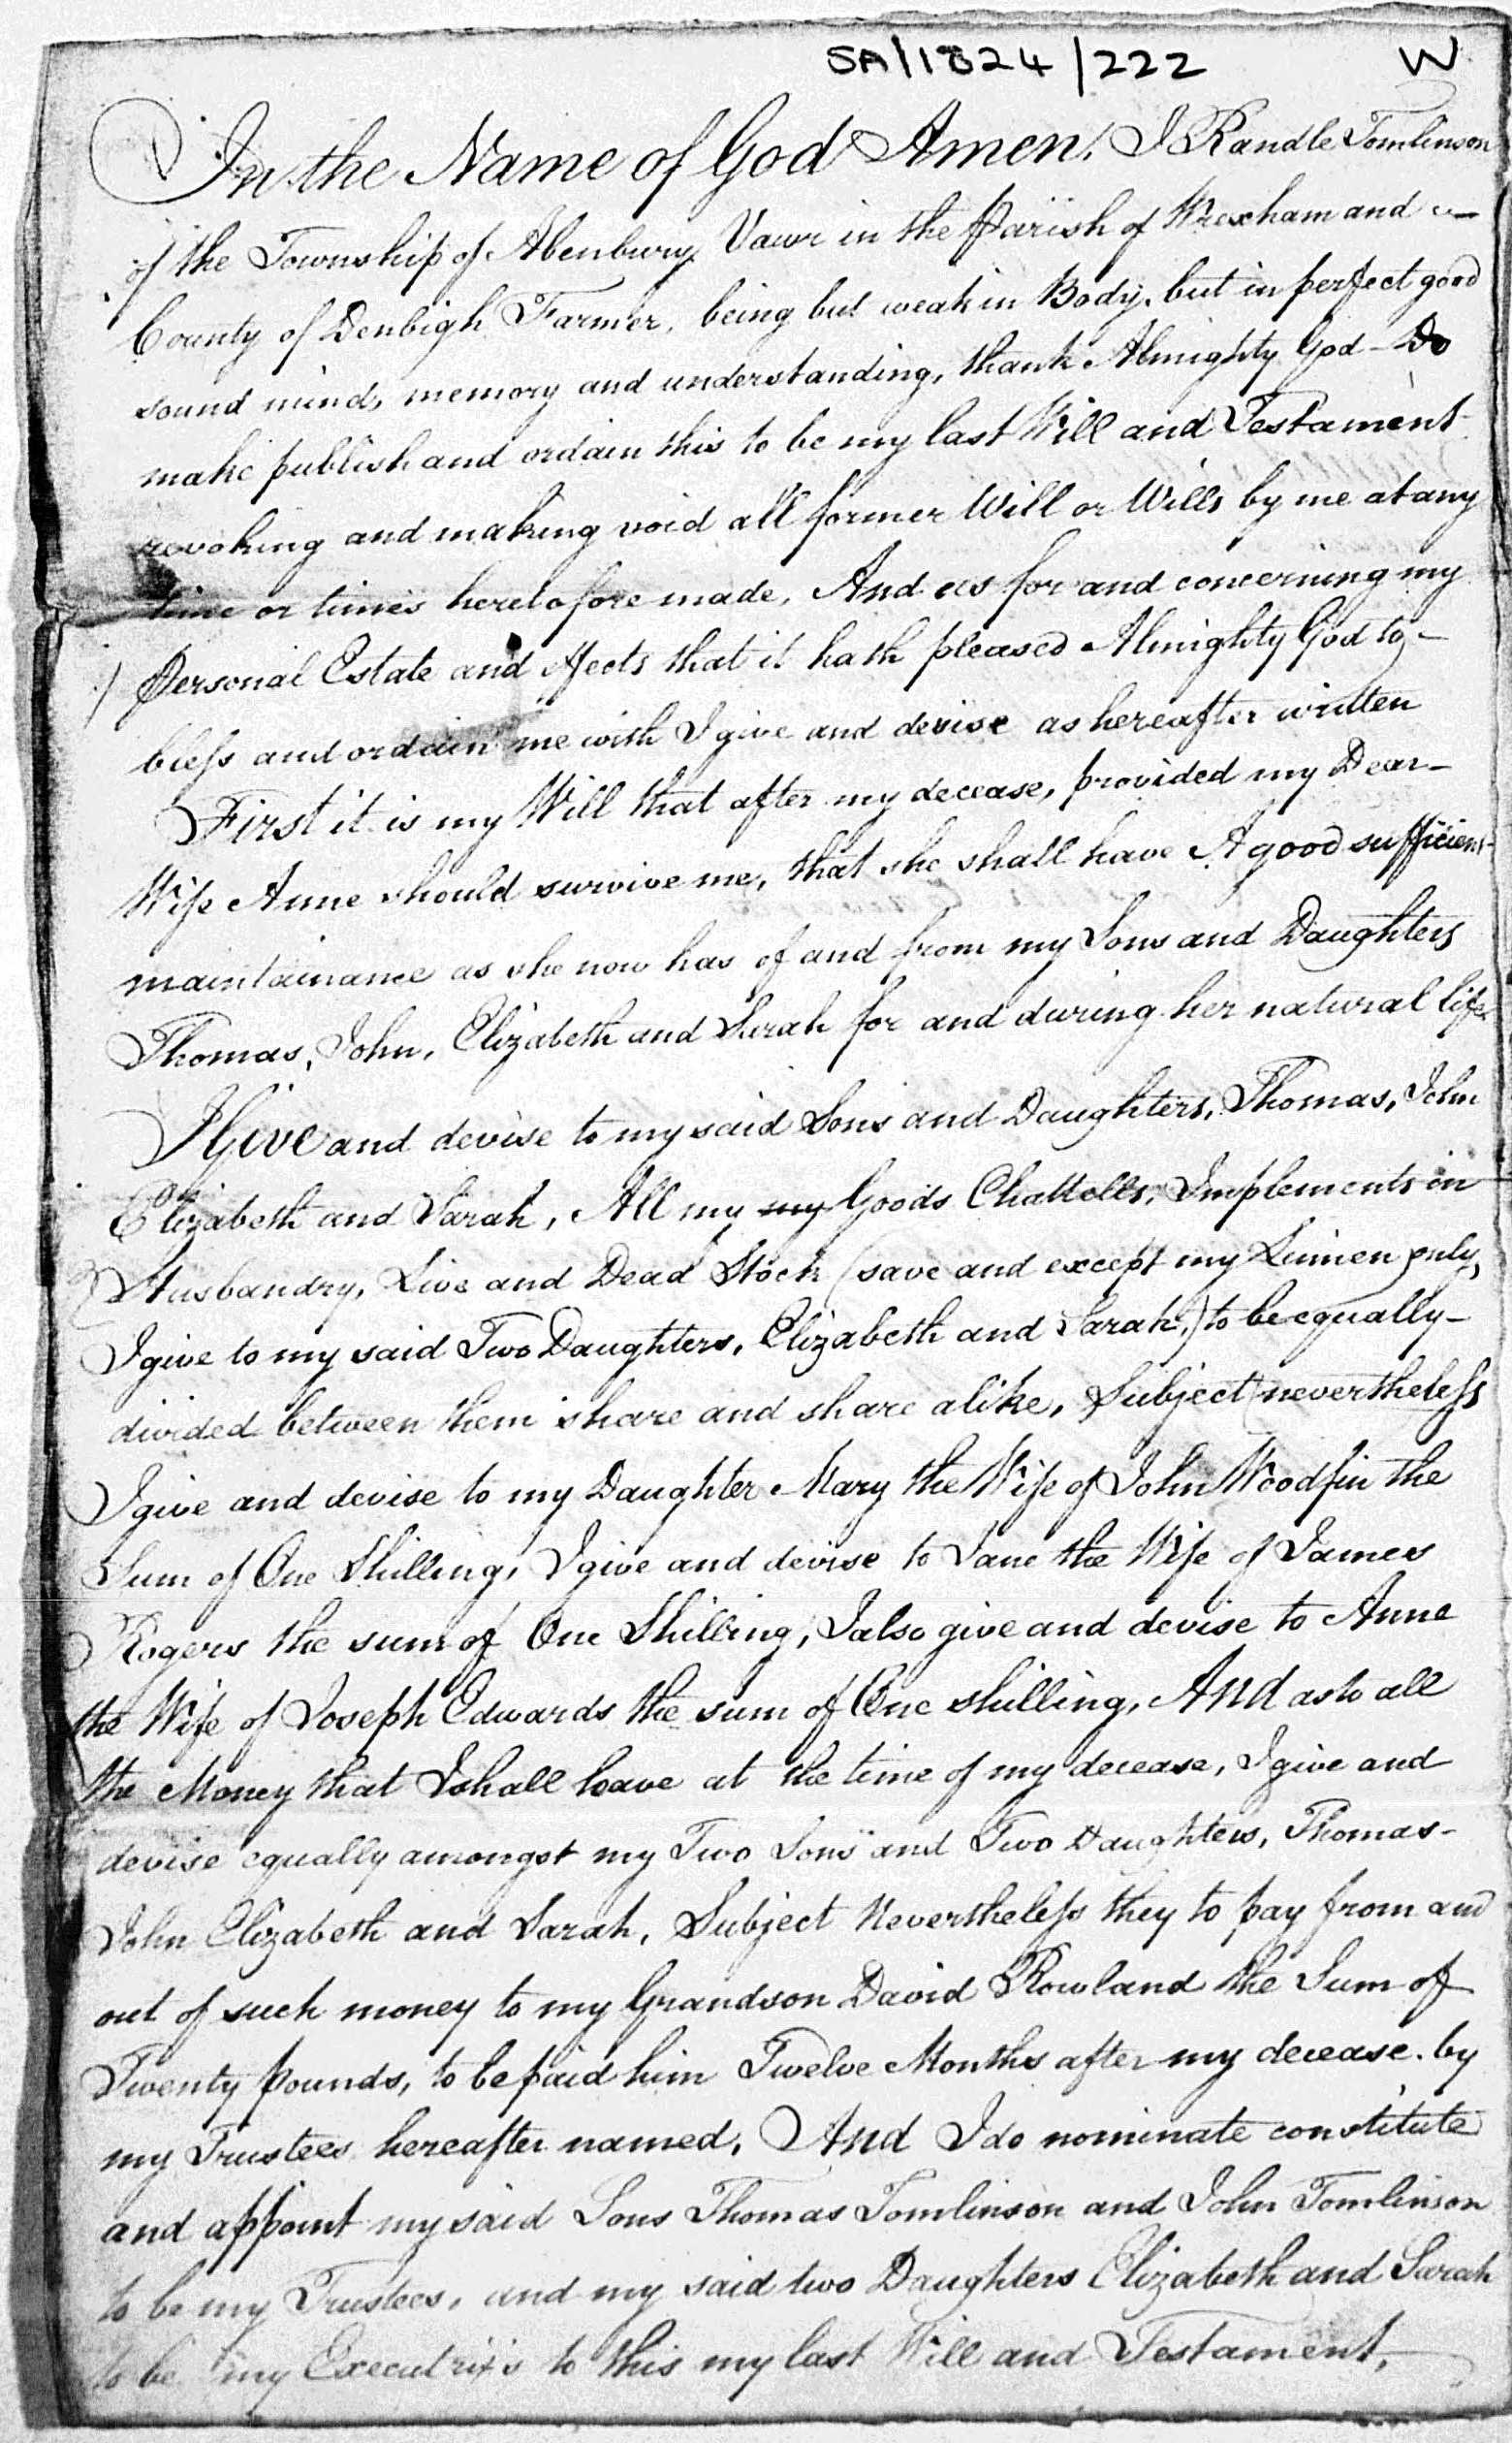 SA/1824/222 W
In the Name of God Amen. I Randle Tomlinson
of the Township of Abenbury Vawr in the Parish of Wrexham and
County of Denbigh Farmer, being but weak in Body, but in perfect good
sound mind, memory and understanding, thank Almighty God - Do
make publish and ordain this to be my last Will and Testament
revoking and making void all former Will or Wills by me at any
time or times heretofore made, And as for and concerning my
Personal Estate and effects that it hath pleased Almighty God to -
bless and ordain me with I give and devise as hereafter written
First it is my Will that after my decease, provided my Dear -
Wife Anne should survive me, that she shall have A good sufficient
maintainance as she now has of and from my Sons and Daughters
Thomas, John, Elizabeth and Sarah for and during her natural life
I Give and devise to my said Sons and Daughters, Thomas, John
Elizabeth and Sarah, All my my Goods Chattells, Implements in
Husbandry, Live and Dead Stock (save and except my Linnen only,
I give to my said Two Daughters, Elizabeth and Sarah,) to be equally -
divided between them share and share alike, Subject nevertheless
I give and devise to my Daughter Mary the Wife of John Woodfin the
Sum of One Shilling, I give and devise to Jane the Wife of James
Rogers the sum of One Shilling, I also give and devise to Anne
the Wife of Joseph Edwards the sum of One shilling, And as to all
the Money that I shall leave at the time of my decease, I give and
devise equally amongst my Two Sons and Two Daughters, Thomas -
John Elizabeth and Sarah, Subject Nevertheless they to pay from and
out of such money to my Grandson David Rowland the Sum of
Twenty pounds, to be paid him Twelve Months after my decease by
my Trustees hereafter named, And I do nominate constitute
and appoint my said Sons Thomas Tomlinson and John Tomlinson
to be my Trustees, and my said two Daughters Elizabeth and Sarah
to be my Executrix's to this my last Will and Testament,